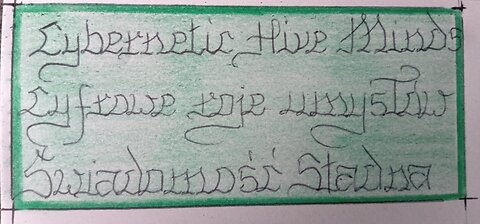 Cybernetic Hive Minds
Cyfrowe roje umysłów
Świadomość Stadna